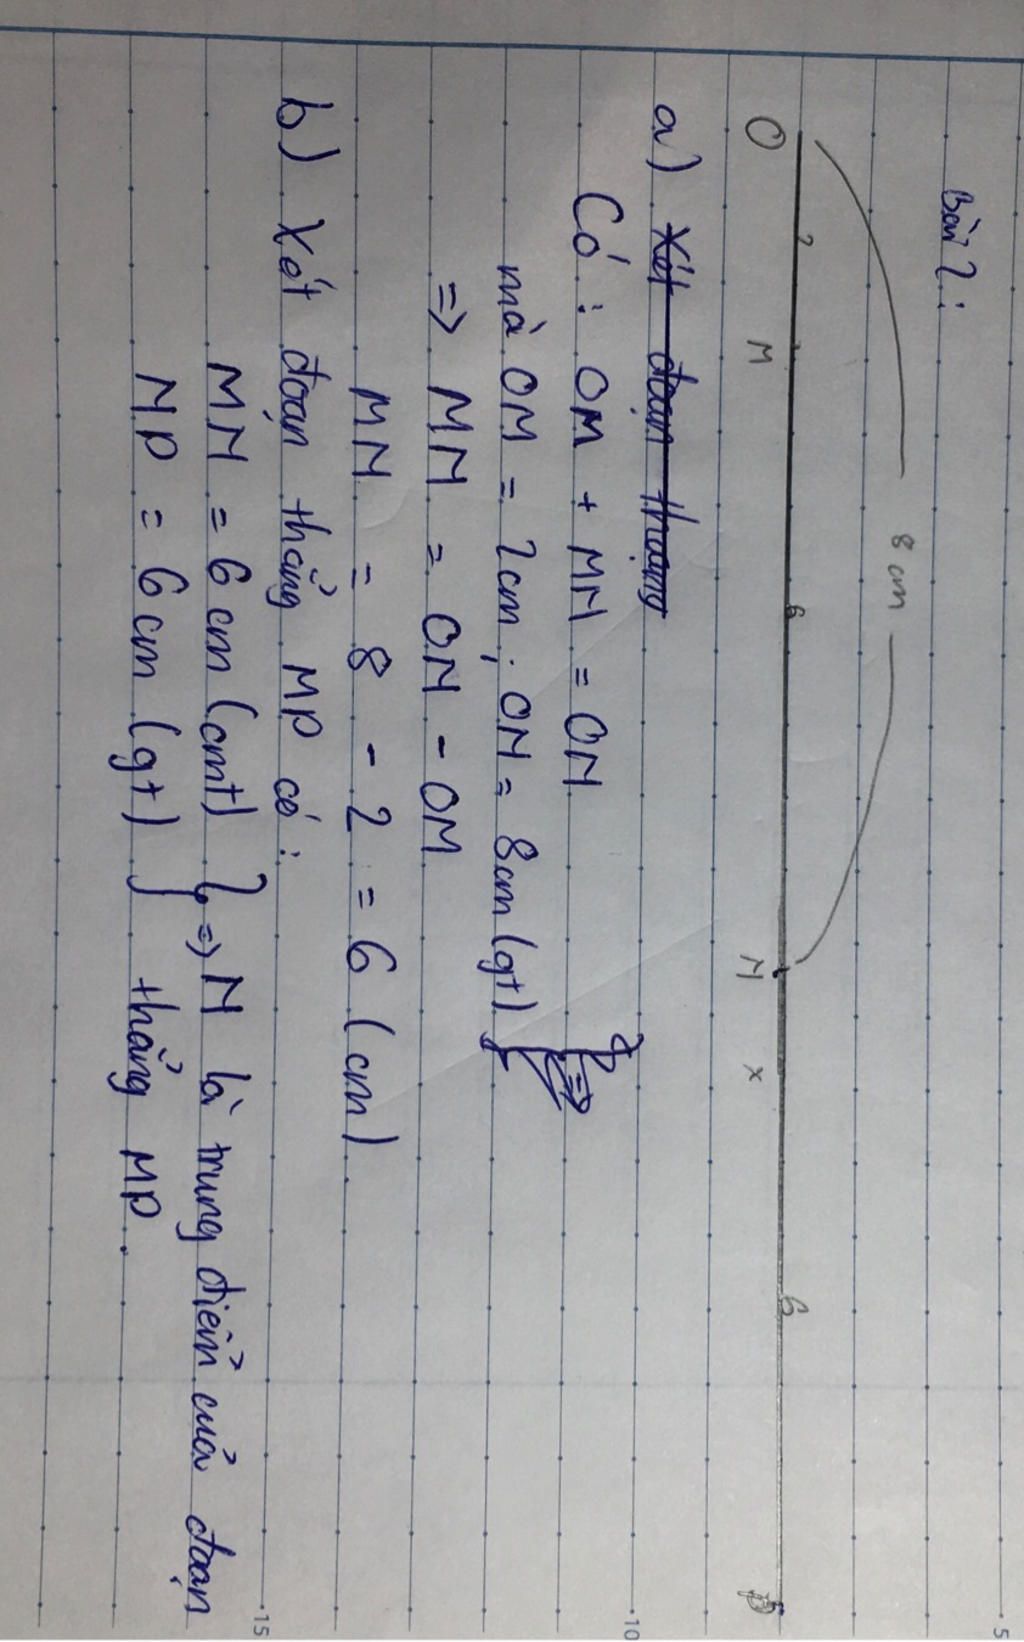 Bài 2:
8 cm
2 6 6
O M N x P
a) Xét đoạn thẳng
Có : OM + MN = ON
mà OM = 2cm ; ON = 8cm (gt) } =>
=> MN = ON - OM
MN = 8 - 2 = 6 (cm).
b) Xét đoạn thẳng MP có :
MN = 6 cm (cmt) } => N là trung điểm của đoạn
NP = 6 cm (gt) } thẳng MP.
5
10
15